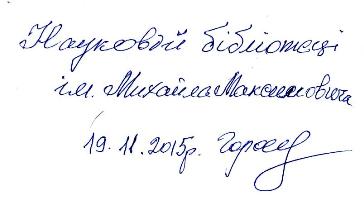 Науковій бібліотеці
ім. Михайла Максимовича
19.11.2015р.